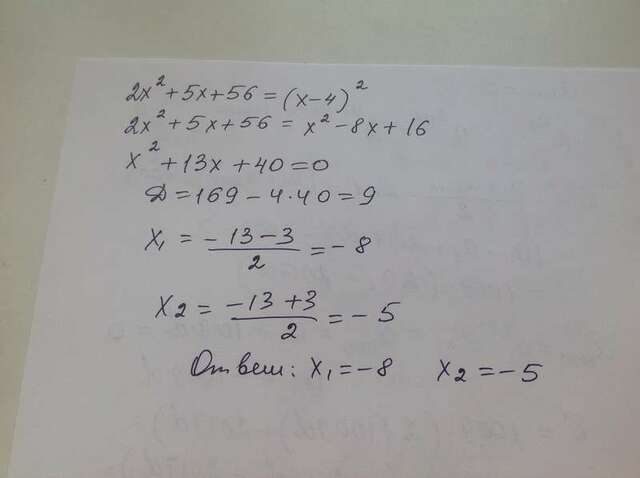 2x² + 5x + 56 = (x - 4)²
2x² + 5x + 56 = x² - 8x + 16
x² + 13x + 40 = 0
D = 169 - 4·40 = 9
x₁ = (-13 - 3)/2 = -8
x₂ = (-13 + 3)/2 = -5
Ответ: x₁ = -8 x₂ = -5